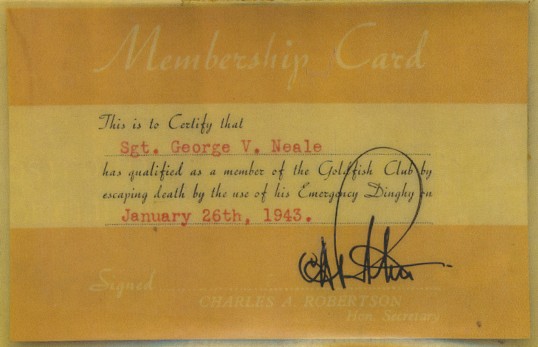 Membership Card
This is to Certify that
Sgt. George V. Neale
has qualified as a member of the Goldfish Club by
escaping death by the use of his Emergency Dinghy on
January 26th, 1943.
Signed
CHARLES A. ROBERTSON
Hon. Secretary